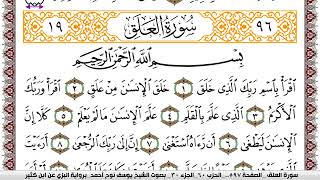 ٩٦ سُورَةُ الْعَلَقِ ١٩
بِسْمِ اللَّهِ الرَّحْمَٰنِ الرَّحِيمِ
اقْرَأْ بِاسْمِ رَبِّكَ الَّذِي خَلَقَ ١ خَلَقَ الْإِنسَٰنَ مِنْ عَلَقٍ ٢ اقْرَأْ وَرَبُّكَ
الْأَكْرَمُ ٣ الَّذِي عَلَّمَ بِالْقَلَمِ ٤ عَلَّمَ الْإِنسَٰنَ مَا لَمْ يَعْلَمْ ٥ كَلَّا إِنَّ
الْإِنسَٰنَ لَيَطْغَىٰ ٦ أَن رَّءَاهُ اسْتَغْنَىٰ ٧ إِنَّ إِلَىٰ رَبِّكَ الرُّجْعَىٰ ٨ أَرَءَيْتَ
سورة العلق الصفحة ٥٩٧ الحزب ٦٠ الجزء ٣٠ بصوت الشيخ يوسف نوح أحمد برواية البزي عن ابن كثير